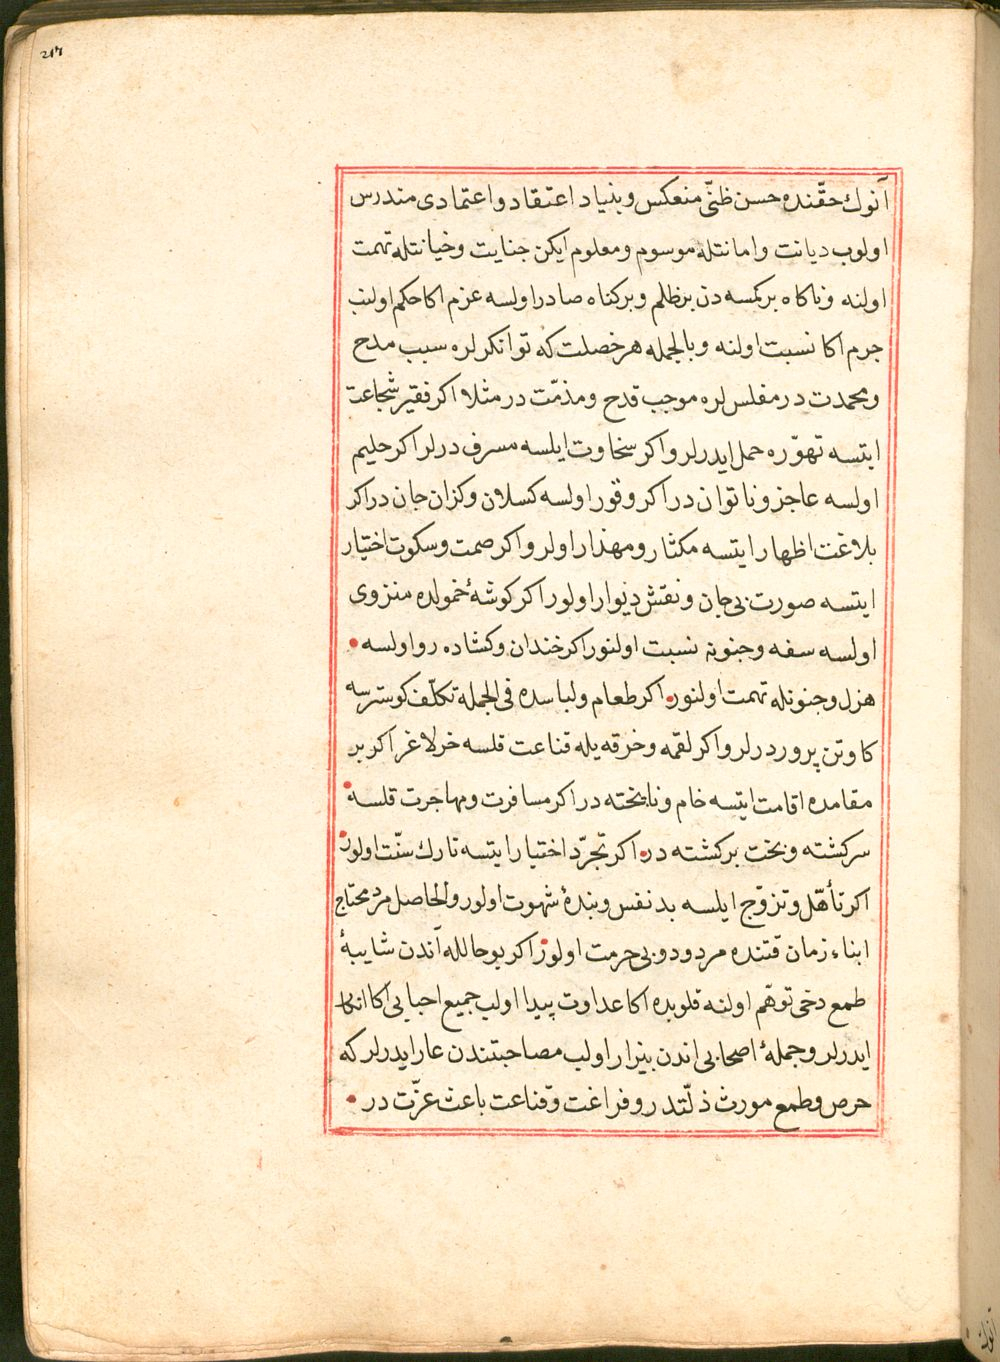 آنوك حقّنده حسن ظنّی منعكس و بنیاد اعتقاد و اعتمادی مندرس
اولوب دیانت و امانتله موسوم و معلوم ایكن جنایت و خیانتله تهمت
اولنه و ناكاه بر كمسه دن بر ظلم و بر كناه صادر اولسه عزم اكا حكم اولنب
جرم اكا نسبت اولنه و بالجمله هر خصلت كه توانكرلره سبب مدح
و محمدت در مفلس لره موجب قدح و مذمّت در مثلا اكر فقیر شجاعت
ایتسه تهوّره حمل ایدرلر و اكر سخاوت ایلسه مسرف درلر اكر حلیم
اولسه عاجز و ناتوان در اكر وقور اولسه كسلان و كران جان در اكر
بلاغت اظهار ایتسه مكثار و مهذار اولر و اكر صمت و سكوت اختیار
ایتسه صورت بی جان و نقش دیوار اولور اكر كوشهٔ خمولده منزوی
اولسه سفه و جنونه نسبت اولنور اكر خندان و كشاده رو اولسه
هزل و جنونله تهمت اولنور اكر طعام و لباسده فی الجمله تكلّف كوسترسه
كاو تن پرور درلر و اكر لقمه و خرقه یله قناعت قلسه خر لاغر اكر بر
مقامده اقامت ایتسه خام و ناپخته در اكر مسافرت و مهاجرت قلسه
سركشته و بخت بركشته در اكر تجرّد اختیار ایتسه تارك سنّت اولور
اكر تأهّل و تزوّج ایلسه بد نفس و بندهٔ شهوت اولور و الحاصل مرد محتاج
ابناء زمان قتنده مردود و بی حرمت اولور اكر بو حالله آندن شایبهٔ
طمع دخی توهّم اولنه قلوبده اكا عداوت پیدا اولب جمیع احبایی اكا انكار
ایدرلر و جملهٔ اصحابی اندن بیزار اولب مصاحبتندن عار ایدرلر كه
حرص و طمع مورث ذلّتدر و فراغت و قناعت باعث عزّت در